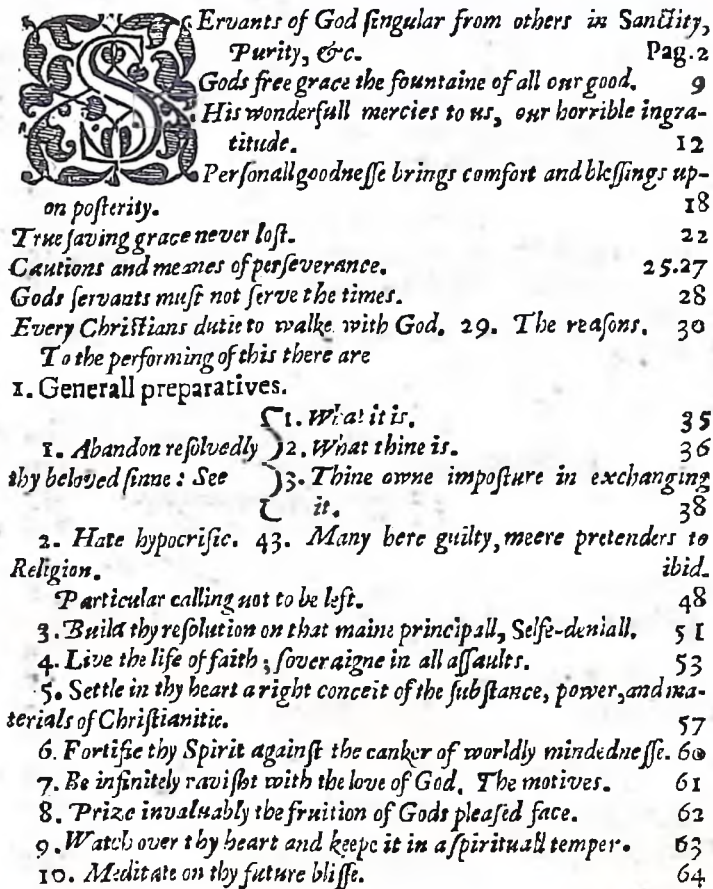 SErvants of God ſingular from others in Sanctity,
Purity, &c. Pag. 2
Gods free grace the fountaine of all our good. 9
His wonderfull mercies to us, our horrible ingra-
titude. 12
Perſonall goodneſſe brings comfort and bleſſings up-
on poſterity. 18
True ſaving grace never loſt. 22
Cautions and meanes of perſeverance. 25.27
Gods ſervants muſt not ſerve the times. 28
Every Chriſtians dutie to walke with God. 29. The reaſons. 30
To the performing of this there are
1. Generall preparatives.
1. What it is. 35
1. Abandon reſolvedly 2. What thine is. 36
thy beloved ſinne: See 3. Thine owne impoſture in exchanging
it. 38
2. Hate hypocriſie. 43. Many here guilty, meere pretenders to
Religion. ibid.
Particular calling not to be left. 48
3. Build thy reſolution on that maine principall, Selfe-deniall. 51
4. Live the life of faith; ſoveraigne in all aſſaults. 53
5. Settle in thy heart a right conceit of the ſubſtance, power, and ma-
terials of Chriſtianitie. 57
6. Fortifie thy Spirit againſt the canker of worldly mindedneſſe. 60
7. Be infinitely raviſht with the love of God. The motives. 61
8. Prize invaluably the fruition of Gods pleaſed face. 62
9. Watch over thy heart and keepe it in a ſpirituall temper. 63
10. Meditate on thy future bliſſe. 64